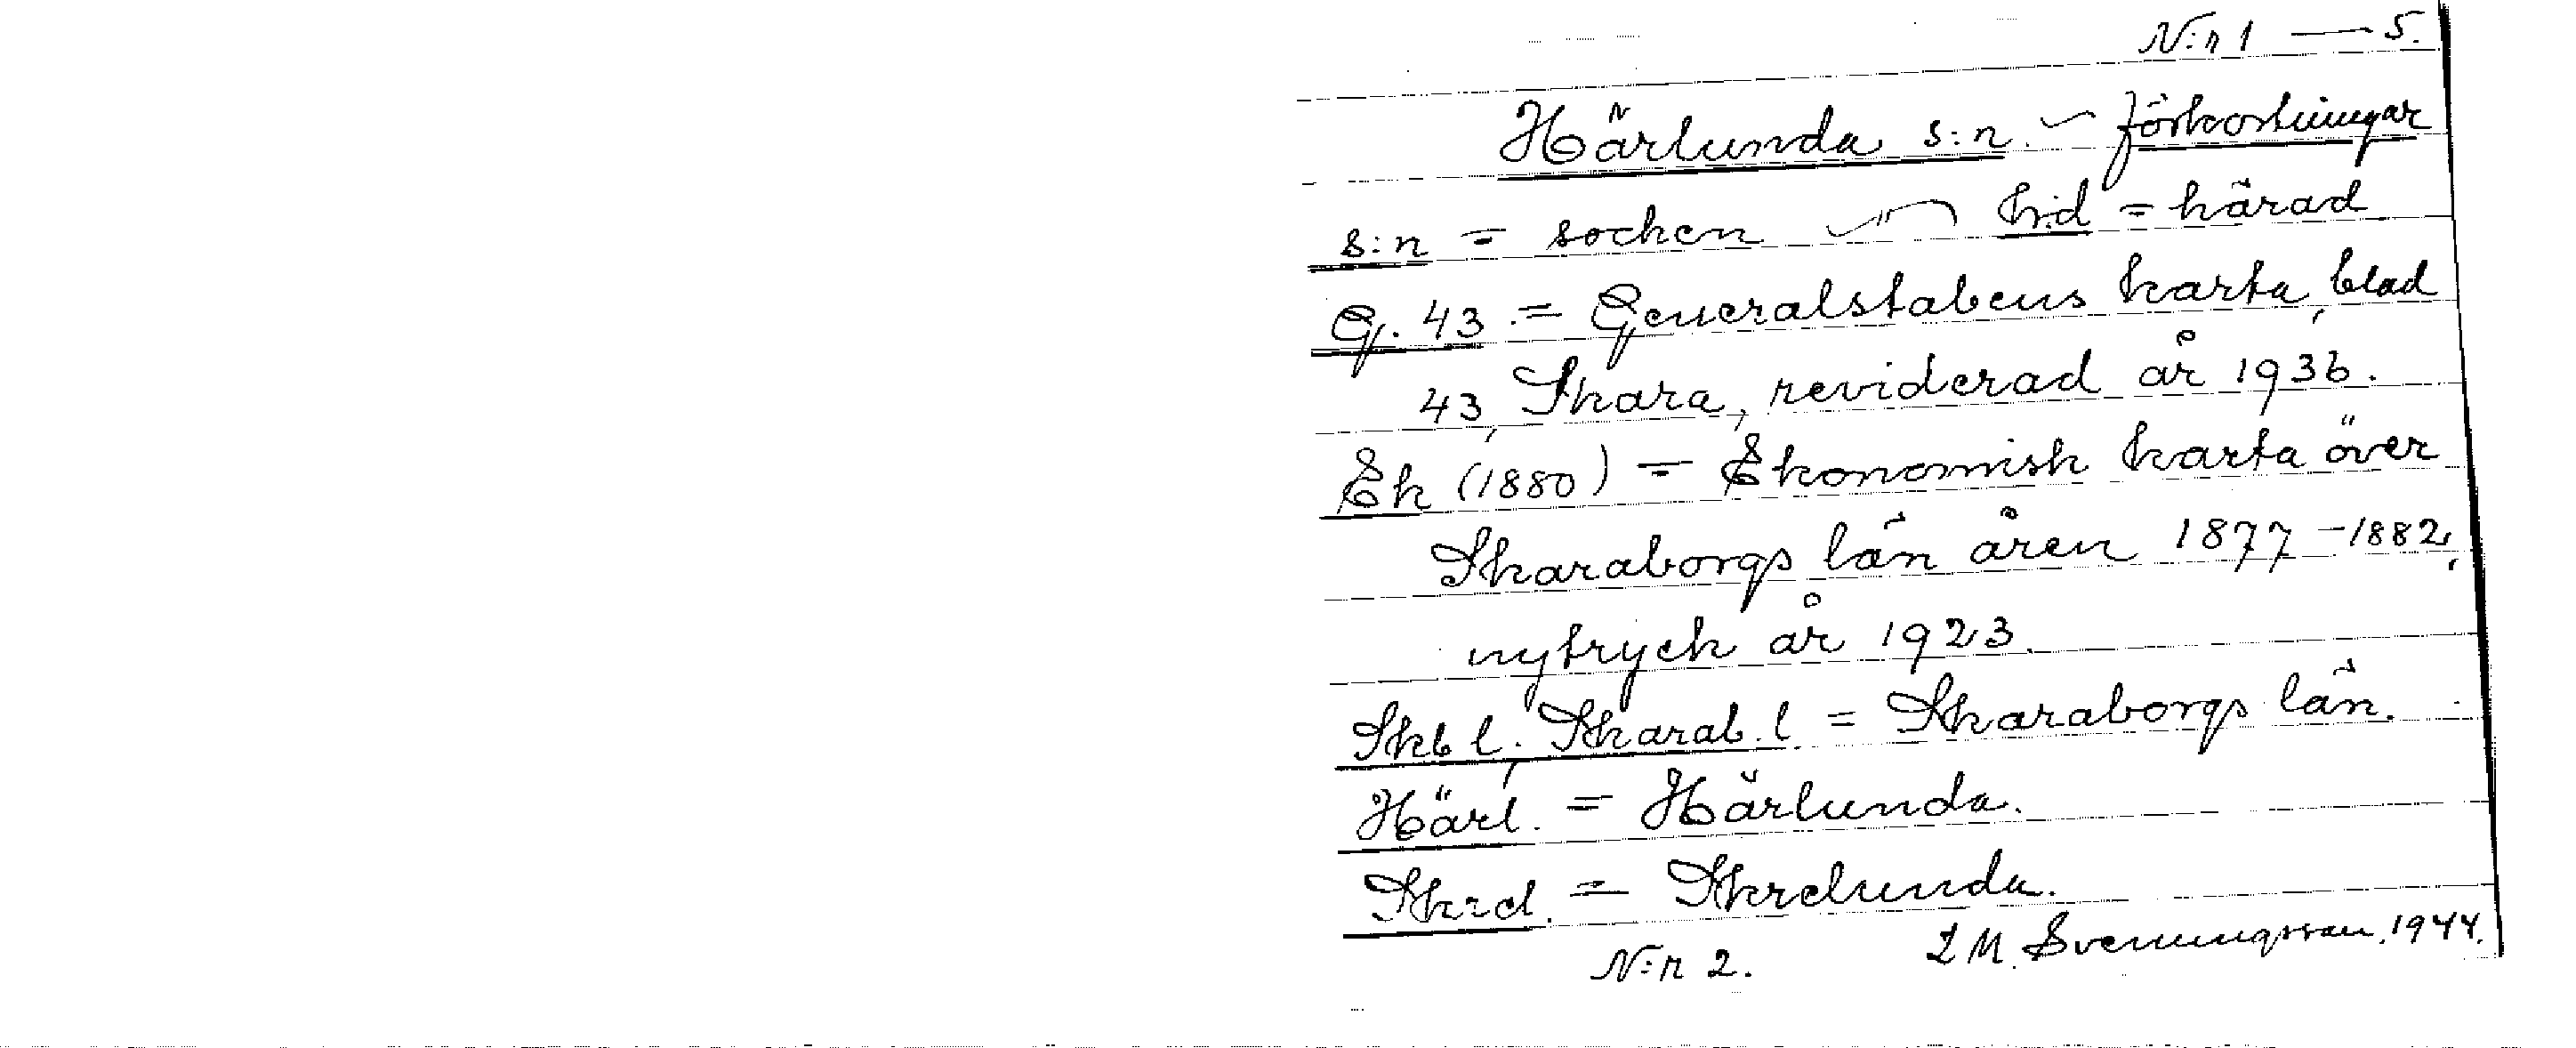 N:r 1 — 5.
Härlunda s:n. ~ förkortningar
s:n = socken — " — h:d = härad
G. 43 = Generalstabens karta, blad
43, Skara, reviderad år 1936.
Ek (1880) = Ekonomisk karta över
Skaraborgs län åren 1877-1882,
nytryck år 1923.
Skb l, Skarab. l = Skaraborgs län.
Härl. = Härlunda.
Skrd. = Skrelunda.
N:r 2. L M. Svenungsson. 1944.